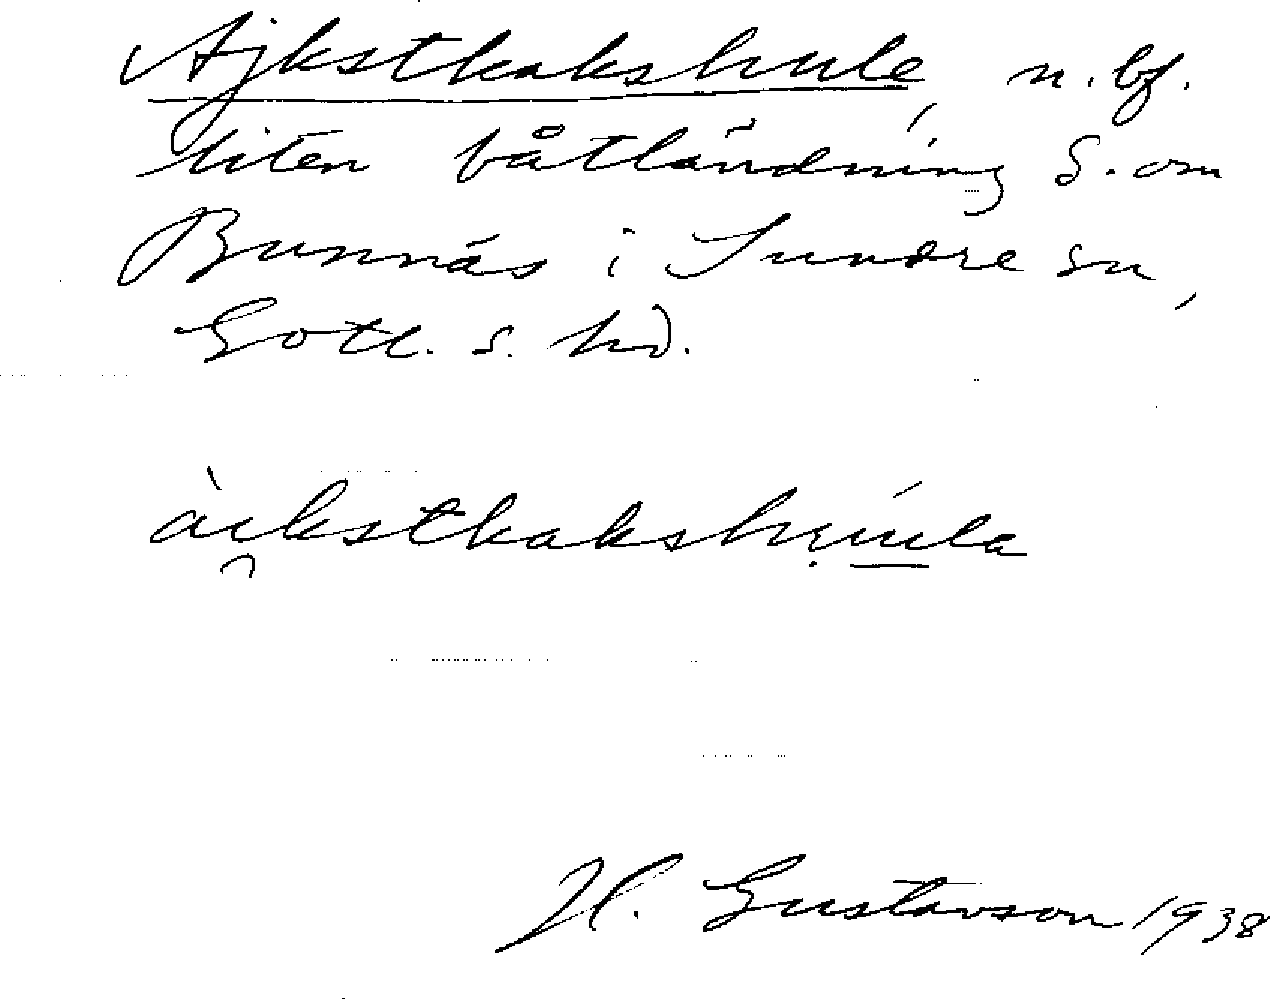 Ajkstkakshule, n. bf.
liten båtländning S. om
Bunnäs i Sundre sn,
Gotl. s. hd.
àikstkakshu̇́ula
H. Gustavson 1938